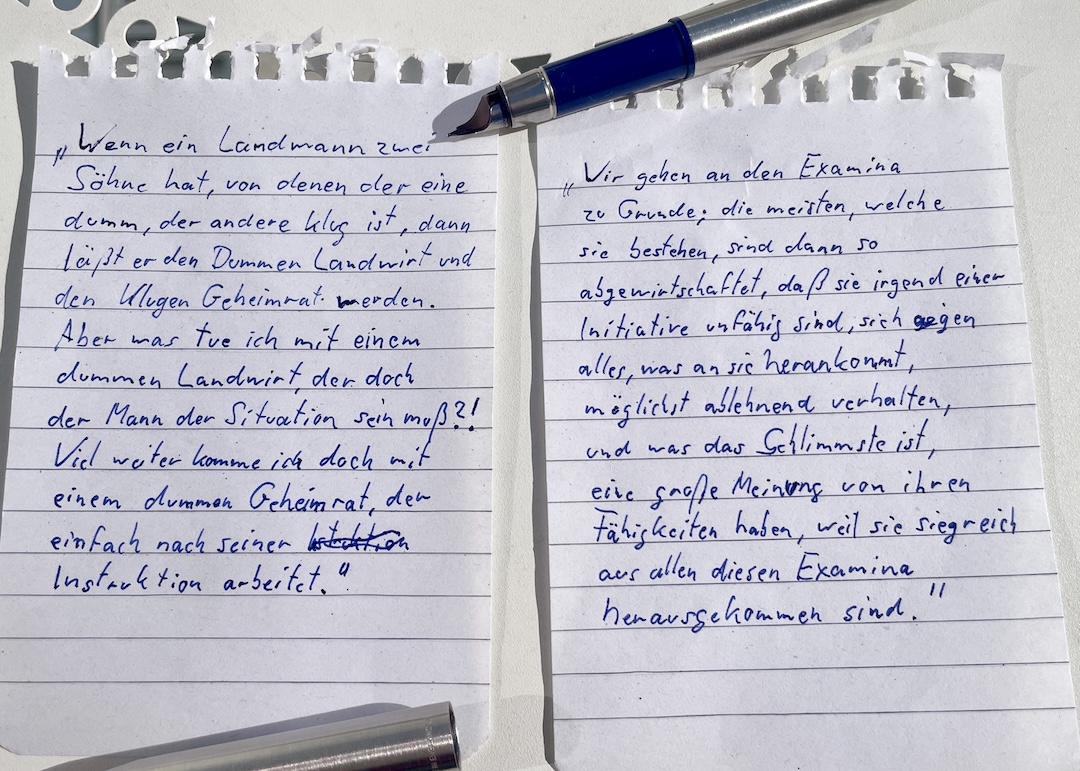 „Wenn ein Landmann zwei
Söhne hat, von denen der eine
dumm, der andere klug ist, dann
läßt er den Dummen Landwirt und
den Klugen Geheimrat werden.
Aber was tue ich mit einem
dummen Landwirt, der doch
der Mann der Situation sein muß?!
Viel weiter komme ich doch mit
einem dummen Geheimrat, der
einfach nach seiner
Instruktion arbeitet."
„Wir gehen an den Examina
zu Grunde; die meisten, welche
sie bestehen, sind dann so
abgewirtschaftet, daß sie irgend einer
Initiative unfähig sind, sich gegen
alles, was an sie herankommt,
möglichst ablehnend verhalten,
und was das Schlimmste ist,
eine große Meinung von ihren
Fähigkeiten haben, weil sie siegreich
aus allen diesen Examina
herausgekommen sind."